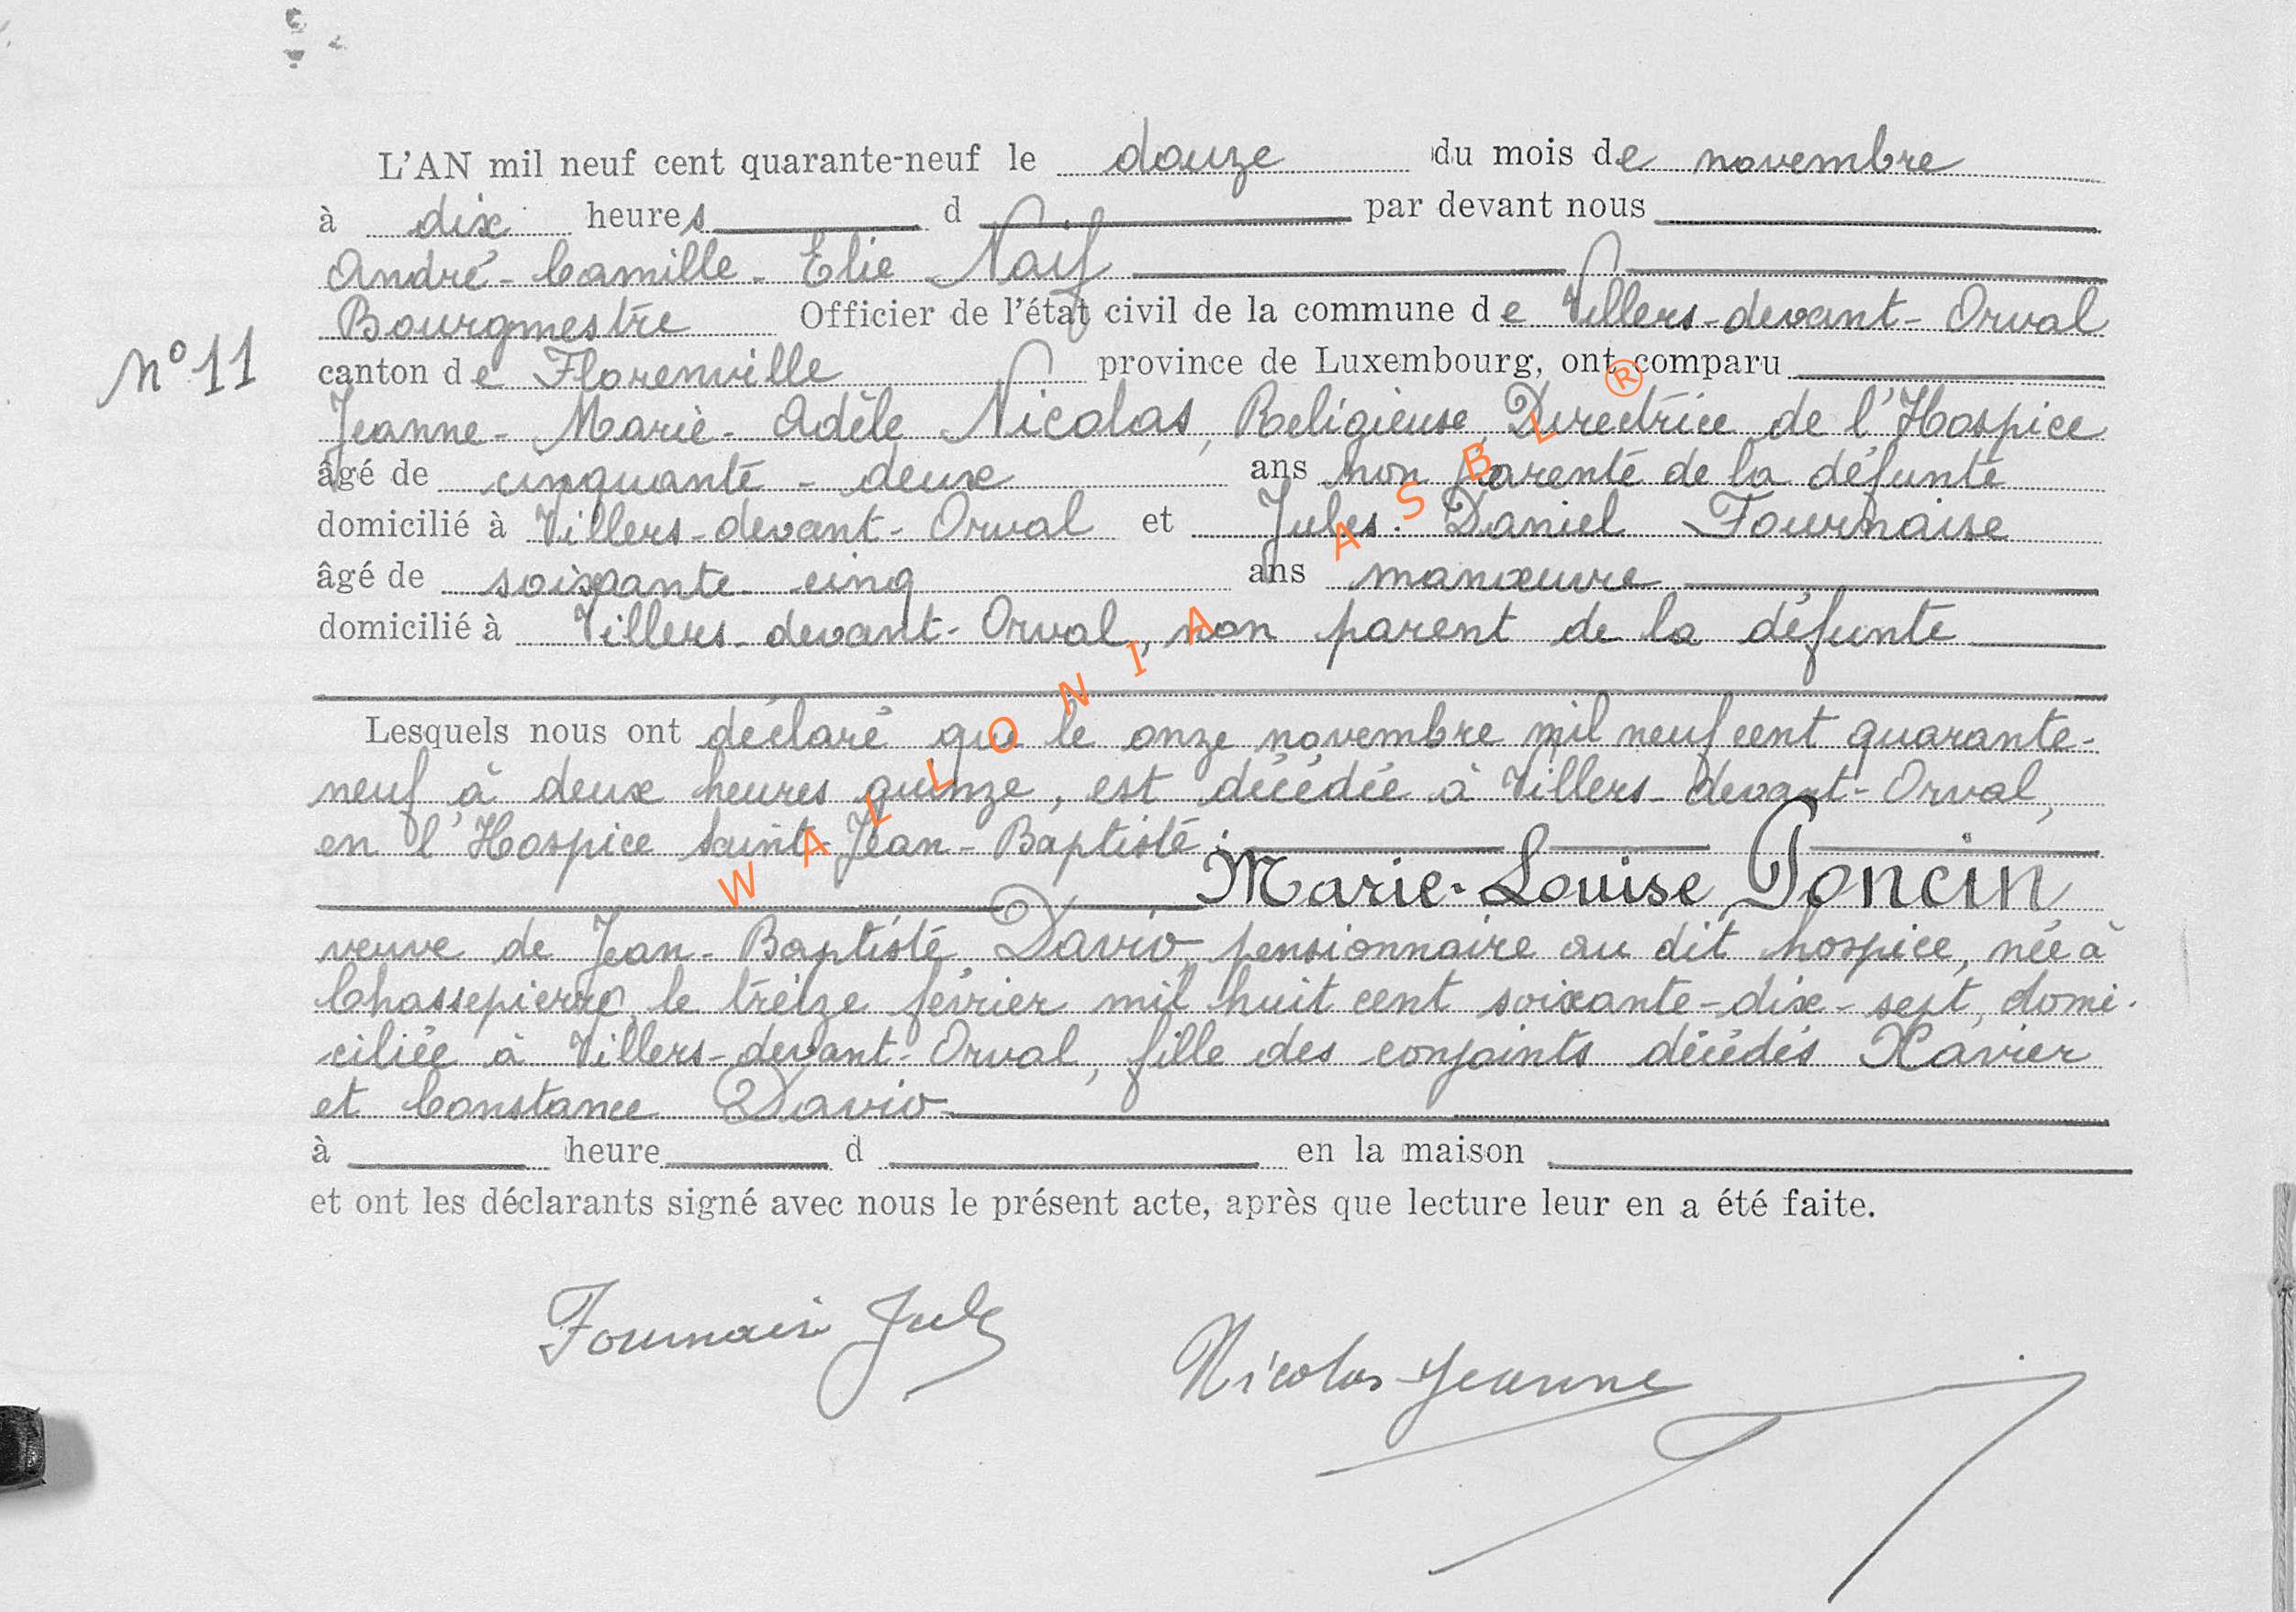 L'AN mil neuf cent quarante-neuf le douze du mois de novembre
à dix heures d par devant nous
André-Camille-Elie Naif
Bourgmestre Officier de l'état civil de la commune de Villers-devant-Orval
N° 11
canton de Florenville province de Luxembourg, ont comparu
Jeanne-Marie-Adèle Nicolas, Religieuse, Directrice de l'Hospice
âgé de cinquante-deux ans non parente de la défunte
domicilié à Villers-devant-Orval et Jules-Daniel Fournaise
âgé de soixante-cinq ans manœuvre
domicilié à Villers-devant-Orval, non parent de la défunte
Lesquels nous ont déclaré que le onze novembre mil neuf cent quarante-
neuf à deux heures quinze, est décédée à Villers-devant-Orval,
en l'Hospice Saint-Jean-Baptiste :
Marie-Louise Poncin
veuve de Jean-Baptiste Davio, pensionnaire au dit hospice, née à
Chassepierre, le treize février mil huit cent soixante-dix-sept, domi-
ciliée à Villers-devant-Orval, fille des conjoints décédés Xavier
et Constance Davio
à heure d en la maison
et ont les déclarants signé avec nous le présent acte, après que lecture leur en a été faite.
Jules
Nicolas Jeanne
WALLONIA ASBL ®